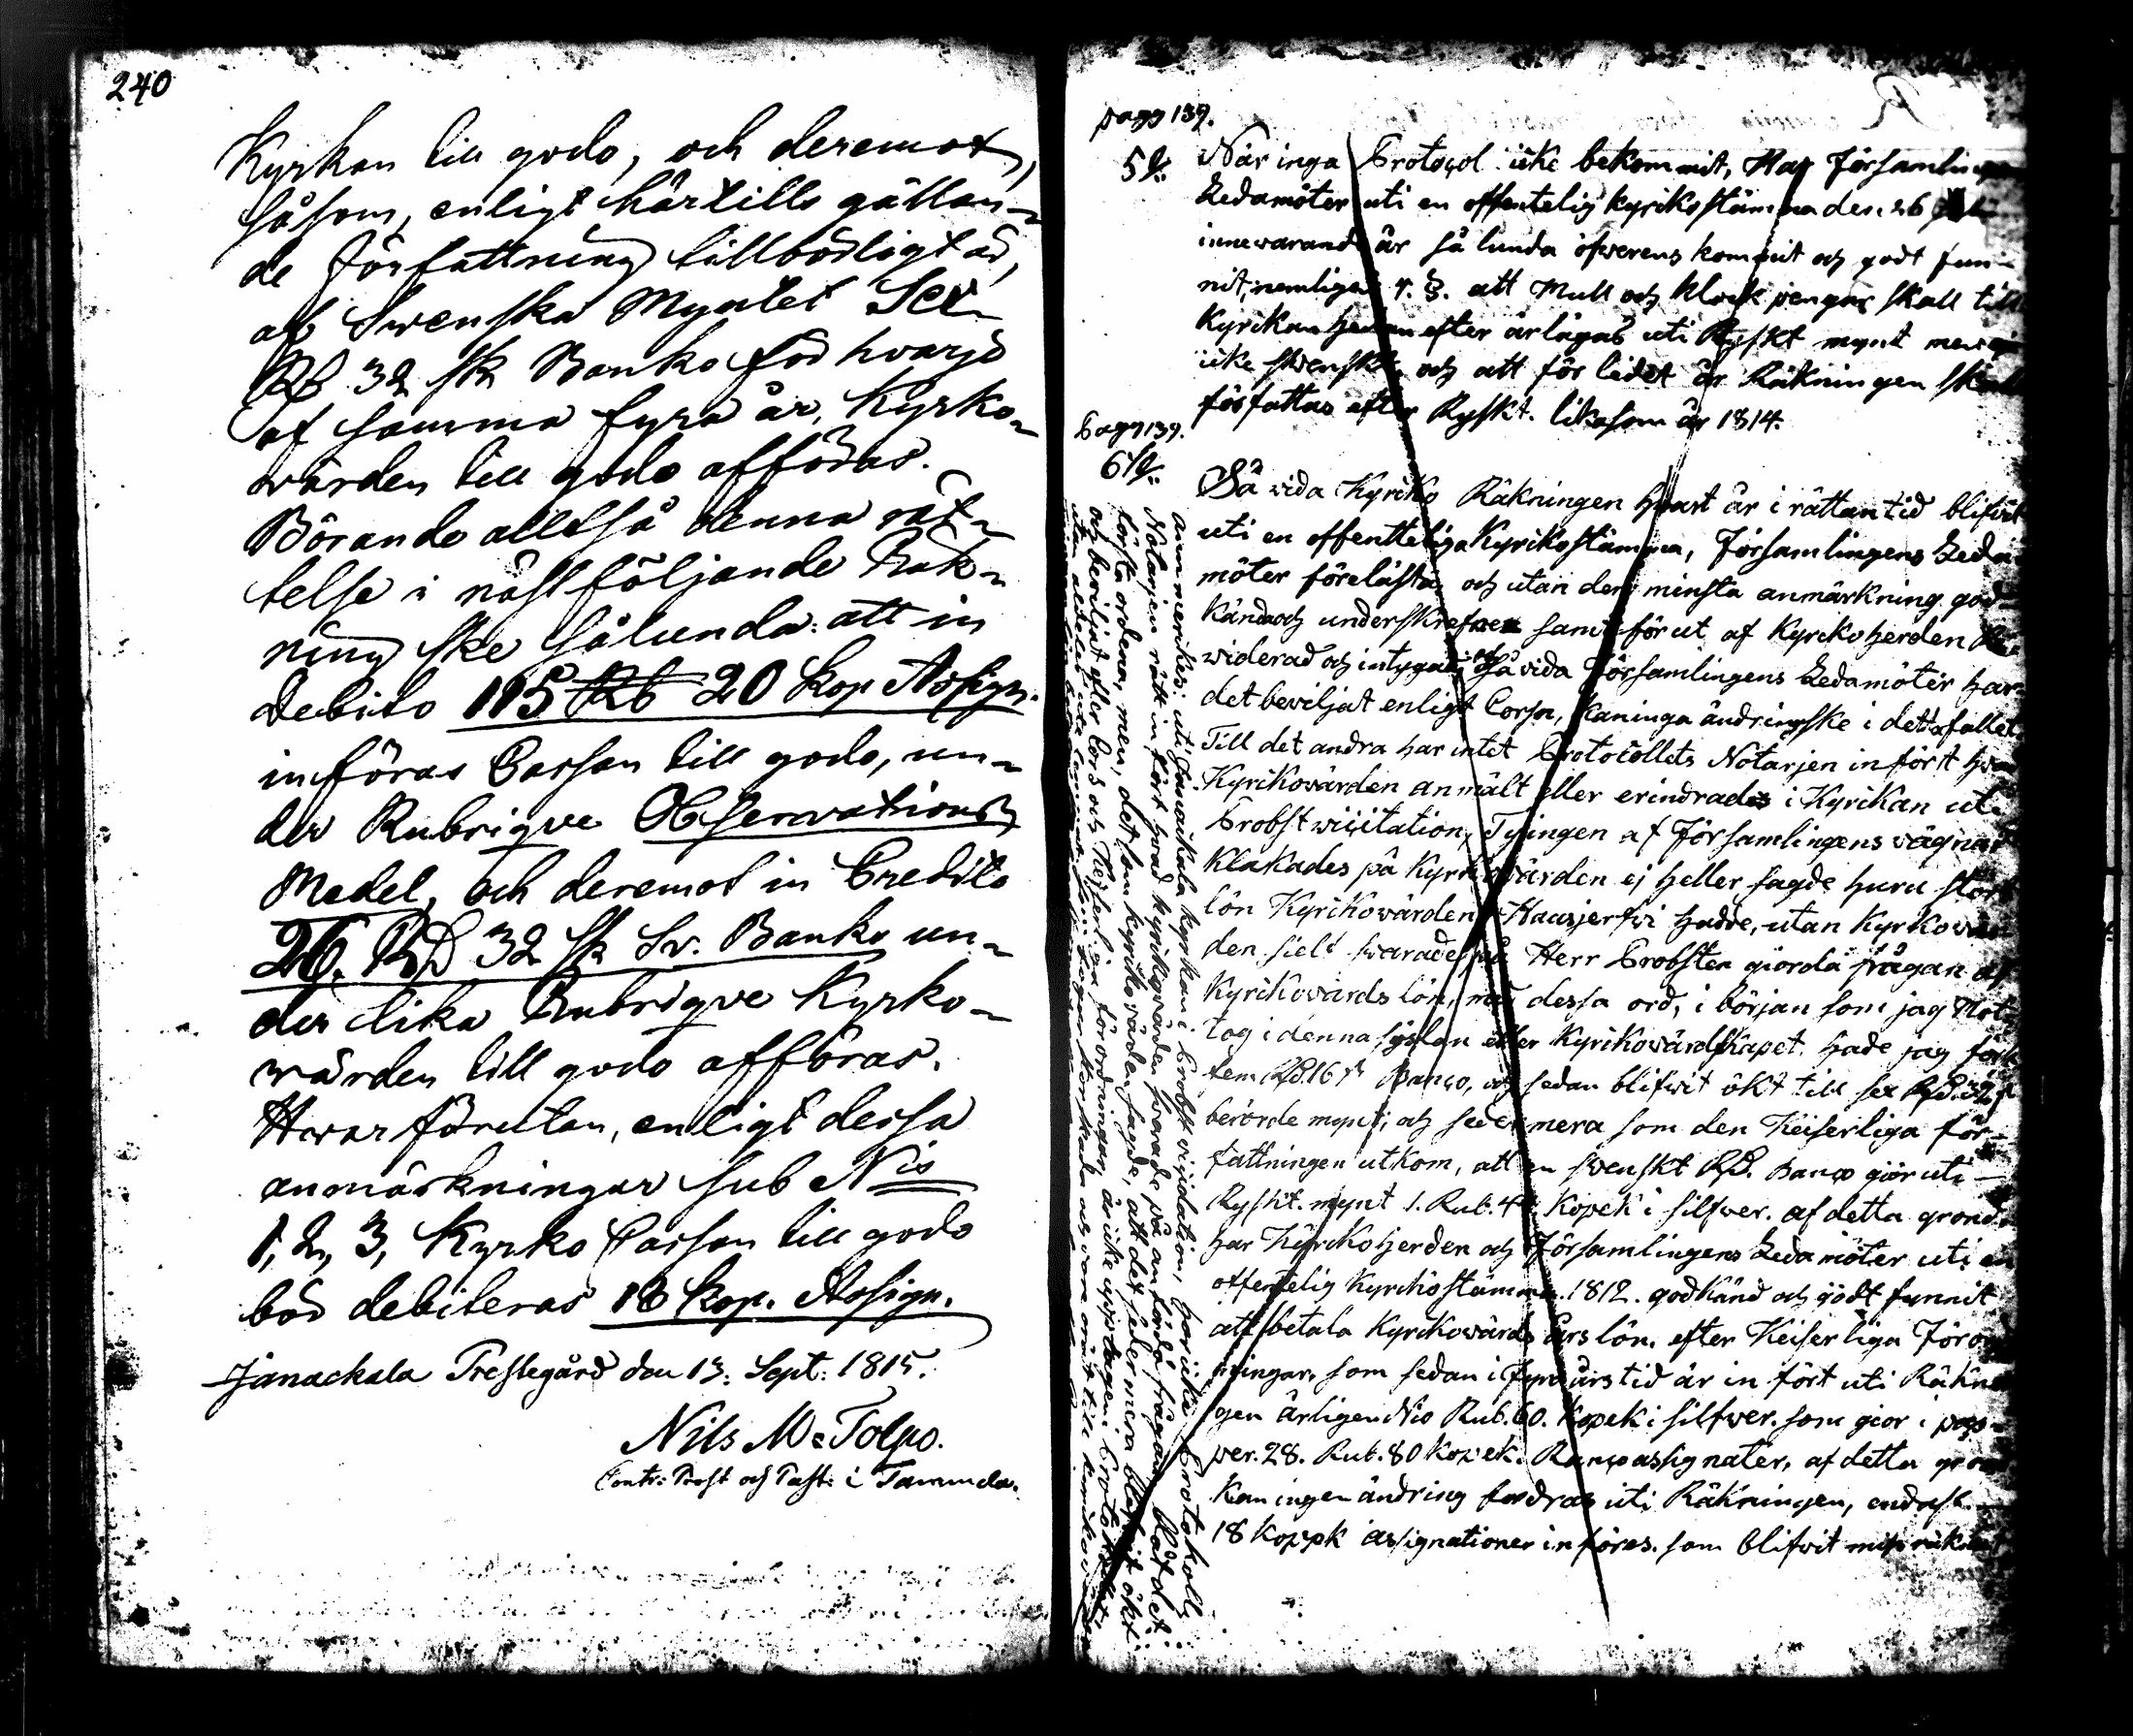 240
Kyrkan till godo, och deremot,
såsom, enligt härtills gällan-
de författning tillbörligt är,
af Swenska Myntet Sex
Rd 32 sk Banko för hvarje
af samma fyra år, Kyrko-
värden till godo afföras.
Börande alltså denna rät-
telse i nästföljande Räk-
ning ske sålunda: att in
Debito 115 Rb 20 kop Assign.
införas Cassan till godo, un-
der Rubrique Observations
Medel, och deremot in Credito
26. RD 32 sk Sv. Banko un-
der lika Rubrique Kyrko-
wärden till godo afföras.
Hwarförutan, enligt dessa
anmärkningar sub Nis
1, 2, 3, Kyrko Cassan till godo
bör debiteras 18 kop. Assign.
Janackala Prestegård den 13. Sept: 1815.
Nils M. Tolpo.
Contr: Prost och Past: i Tammela.
pagg 139.
5 §: När inga Protocol icke bekommit, Har Församlingen
Ledamöter uti en offentelig kyrikostämma den 26
innevarande år så lunda öfwerens kommit och godt fun-
nit, nemligen 4. §. att Mull och klock pengar skall till
Kyrikan hedan efter ärlägas uti Ryskt mynt men
icke swenskt, och att för ledet år Räkningen skall
författas efter Ryskt. likasom år 1814.
pagg 139.
6 §:
Så wida Kyriko Räkningen hwart år i rättan tid blifwit
uti en offentteliga Kyrikostämma, Församlingens Leda-
möter förelästa, och utan den minsta anmärkning god-
känd och underskrefwen samt förut af Kyrckoherden
widerad och intygad, och så vida Församlingens Ledamöter har
det beviljat enligt Corsn, kan inga ändring ske i detta fallet.
Till det andra har intet Protocollets Notarjen infört hwad
Kyrikowärden anmält eller erindrades i Kyrikan uti
Probstwicitation, Tyingen af Församlingens vägnar
klakades på Kyrikowärden ej heller sagde huru stor
lön Kyrikowärden i Hausjerfwi hadde, utan Kyrkowär-
den sielf swarade på Herr Probsten giorda frågan af
Kyrikowärds lön, med dessa ord, i början som jag Mot-
tog i denna syslan eller Kyrikowärdskapet. hade jag
tem Rd. 16 sk Banco, och sedan blifwit ökt till sex Rd. 32 s
berörde mynt; och sedermera som den Keiserliga för-
fattningen utkom, att en swenskt Rd. Banco giör uti
Ryskt. mynt 1. Rub. 44 Kopek i silfwer. af detta grond.
har Kyrckoherden och Församlingens Ledamöter uti en
offentelig Kyrckostämma. 1812. godkänd och godt funnit
att betala Kyrckowärds års lön. efter Keiserliga Förord
ningar, som sedan i fyra års tid är in fört uti Räknin
gen årligen Nio Rub. 60. Kopek i silfwer. som gior i pap-
per. 28. Rub. 80 Kopek. Banco assignater, af detta grond
kan ingen ändring fordras uti Räkningen, endast
18 kopek assignationer införes. som blifwit missräknat
anmerkes: uti Janackala kyrkan i Probstvisidation, har icke Protokolls
Notarjen rätt in fört hwad kyrikowärden swarade på an förda frågan blåt det
första orden, men, det som kyrikowärden sagde, att det sedermera blifwit ökt
och beviljat efter Cors och Keiserliga förordningen, är icke upptagen i Protokollet,